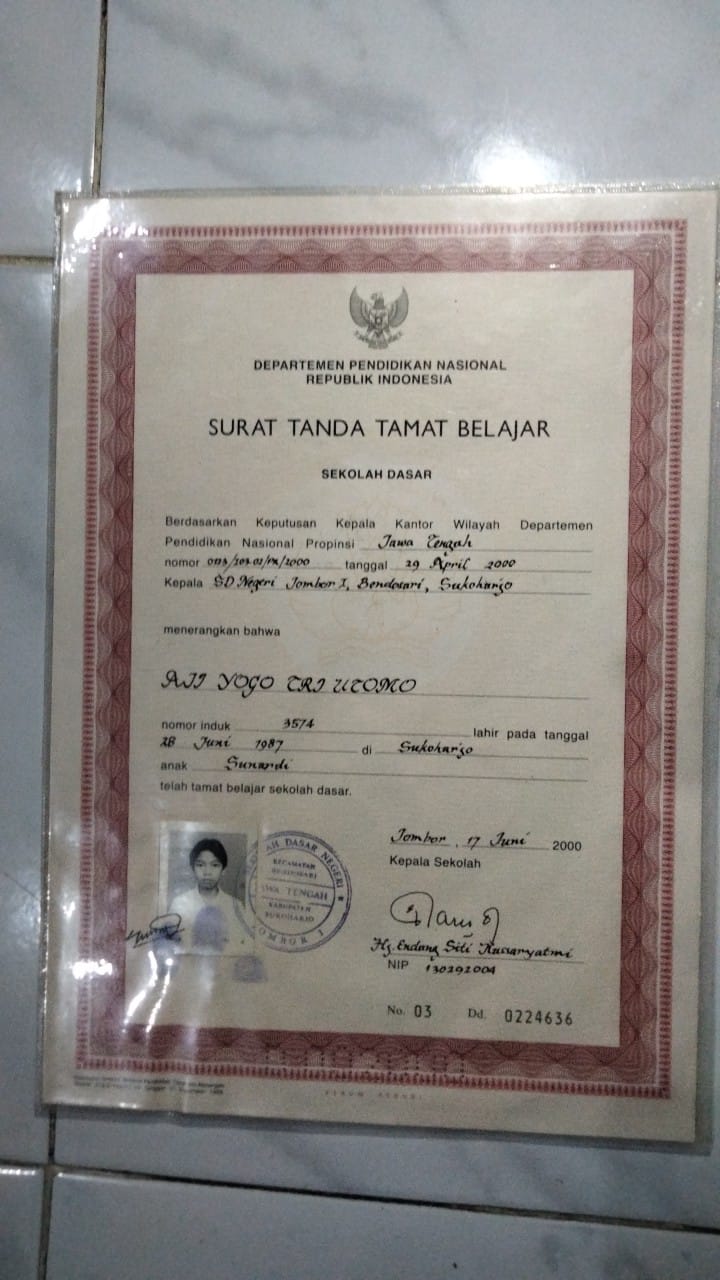 DEPARTEMEN PENDIDIKAN NASIONAL
REPUBLIK INDONESIA
SURAT TANDA TAMAT BELAJAR
SEKOLAH DASAR
Berdasarkan Keputusan Kepala Kantor Wilayah Departemen
Pendidikan Nasional Propinsi Jawa Tengah
nomor tanggal 29 April 2000
Kepala SD Negeri Jombor I, Bendosari, Sukoharjo
menerangkan bahwa
AJI YOGO TRI UTOMO
nomor induk 3574 lahir pada tanggal
28 Juni 1987 di Sukoharjo
anak Sunardi
telah tamat belajar sekolah dasar.
Jombor, 17 Juni 2000
Kepala Sekolah
SEKOLAH DASAR NEGERI
KECAMATAN
BENDOSARI
JAWA TENGAH
KABUPATEN
SUKOHARJO
JOMBOR I
Hj. Endang Siti
NIP 130292004
No. 03 Dd. 0224636
PERUM PERURI